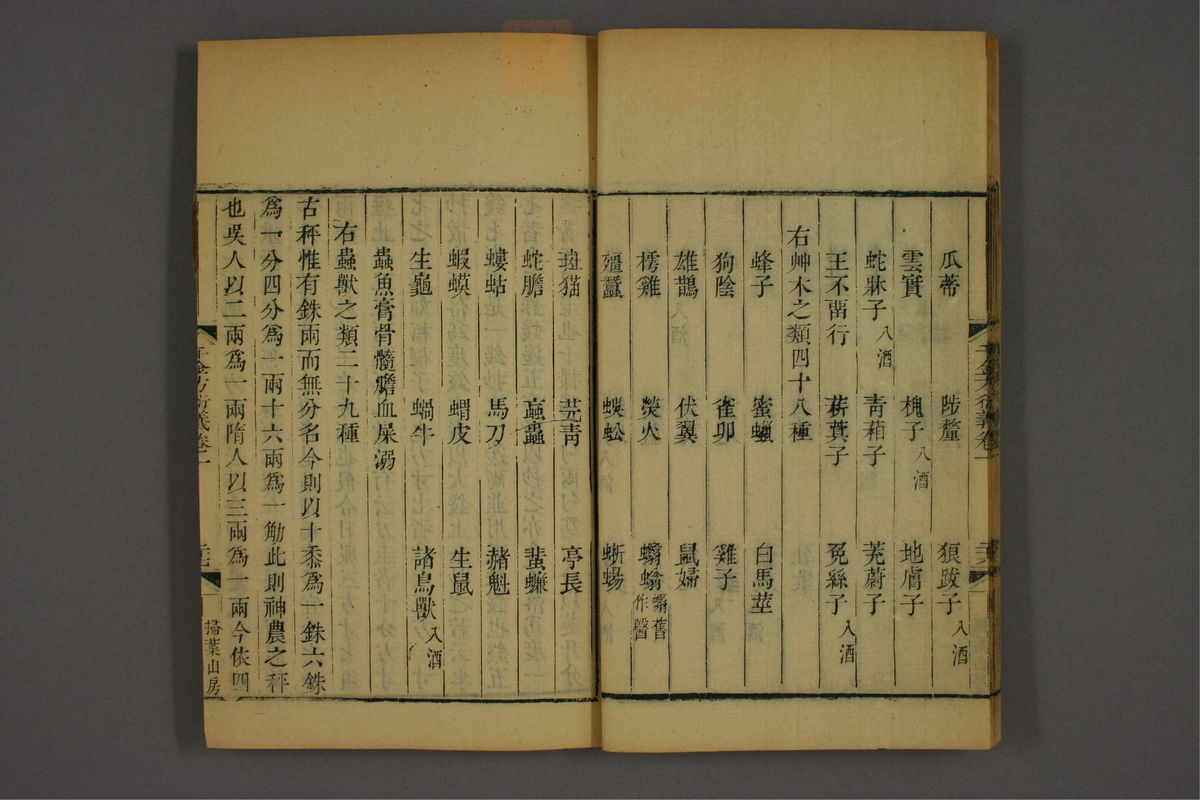 瓜蒂 陟釐 狼跋子入酒
雲實 槐子入酒 地膚子
蛇牀子入酒 青葙子 茺蔚子
王不畱行 菥蓂子 兔絲子入酒
右艸木之類四十八種
蜂子 蜜蠟 白馬莖
狗陰 雀卵 雞子
雄鵲 伏翼 鼠婦
樗雞 熒火 蠮螉蠮舊作醫
殭蠶 蜈蚣 蜥蜴
斑貓 芫青 亭長
蛇膽 蝱蟲 蜚蠊
螻蛄 馬刀 赭魁
蝦蟆 蝟皮 生鼠
生龜 蝸牛 諸鳥獸入酒
蟲魚膏骨髓膽血屎溺
右蟲獸之類二十九種
古秤惟有銖兩而無分名今則以十黍爲一銖六銖
爲一分四分爲一兩十六兩爲一觔此則神農之秤
也吳人以二兩爲一兩隋人以三兩爲一兩今依四
千金方衍義卷一
掃葉山房